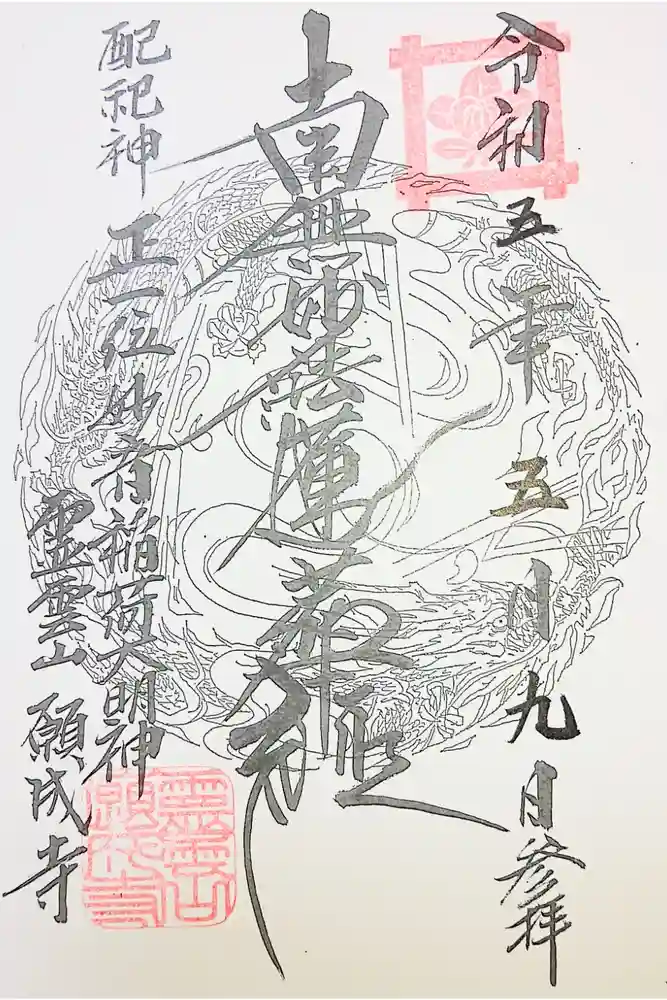 令和五年五月九日参拝
南無妙法蓮華経
配祀神
正一位妙存稲荷大明神
霊雲山 願成寺
霊雲山
願成寺